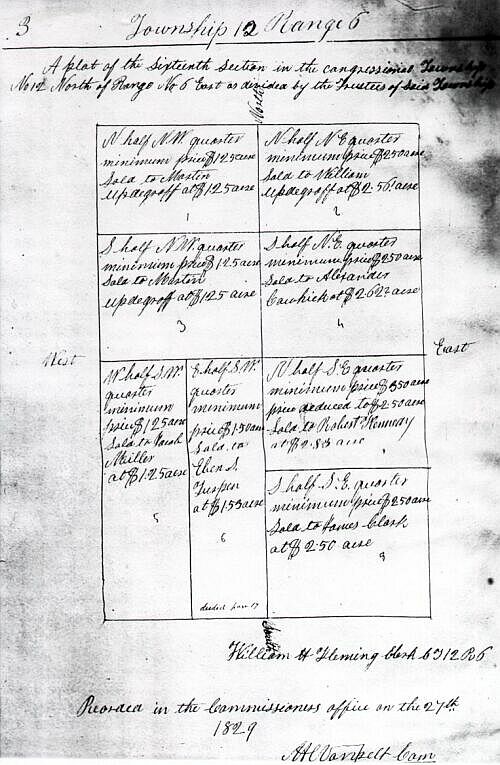 3 Township 12 Range 6
A plat of the Sixteenth Section in the congressional Township
No 12 North of Range No 6 East as divided by the Trustees of said Township
North
N half N.W. quarter
minimum price $ 1.25 acre
Sold to Martin
Updegroff at $ 1.25 acre
1
N half N E quarter
minimum price $ 2.50 acre
Sold to William
Updegroff at $ 2.56¼ acre
2
S half N.W. quarter
minimum price $ 1.25 acre
Sold to Martin
Updegroff at $ 1.25 acre
3
S half N.E. quarter
minimum price $ 2.50 acre
Sold to Alexander
at $ 2.62½ acre
4
West
East
W half S.W.
quarter
minimum
price $ 1.25 acre
Sold to Jacob
Miller
at $ 1.25 acre
5
E half S.W.
quarter
minimum
price $ 1.50 acre
Sold to
Eben S.
Turpen
at $ 1.53 acre
6
deeded
N half S E quarter
minimum price $ 3.50 acre
price deduced to $ 2.50 acre
Sold to Robert Kennedy
at $ 2.83 acre
S half S.E. quarter
minimum price $ 2.50 acre
Sold to James Clark
at $ 2.50 acre
8
South
William H Fleming Clerk C T 12 R 6
Recorded in the Commissioners office on the 27th
1829
A H Vanpelt Com